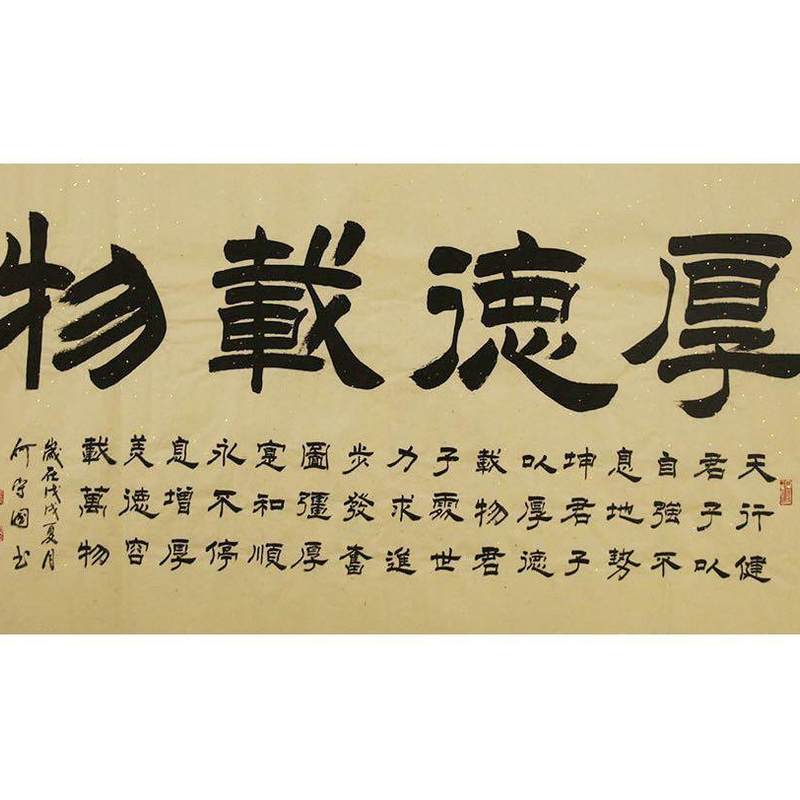 厚德載物
天行健
君子以
自強不
息地勢
坤君子
以厚德
載物君
子處世
力求進
步發奮
圖彊厚
寔和順
永不停
息增厚
美德容
載萬物
歲在戊戌夏月
何守國书